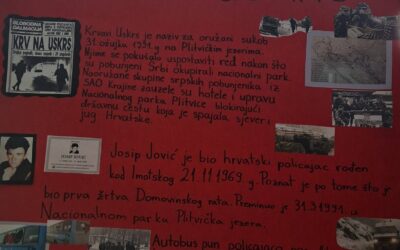 SLOBODNA
DALMACIJA
KRV NA
USKRS
Krvavi Uskrs je naziv za oružani sukob
31. ožujka 1991. na Plitvičkim jezerima.
Njime se pokušalo uspostaviti red nakon što
su pobunjeni Srbi okupirali nacionalni park.
Naoružane skupine srpskih pobunjenika iz
SAO Krajine zauzele su hotele i upravu
Nacionalnog parka Plitvice blokirajući
državnu cestu koja je spajala sjever i
jug Hrvatske.
JOSIP JOVIĆ
Josip Jović je bio hrvatski policajac rođen
kod Imotskog 21.11.1969. Poznat je po tome što je
bio prva žrtva Domovinskog rata. Preminuo je 31.3.1991. u
Nacionalnom parku Plitvička jezera.
Autobus pun policajaca